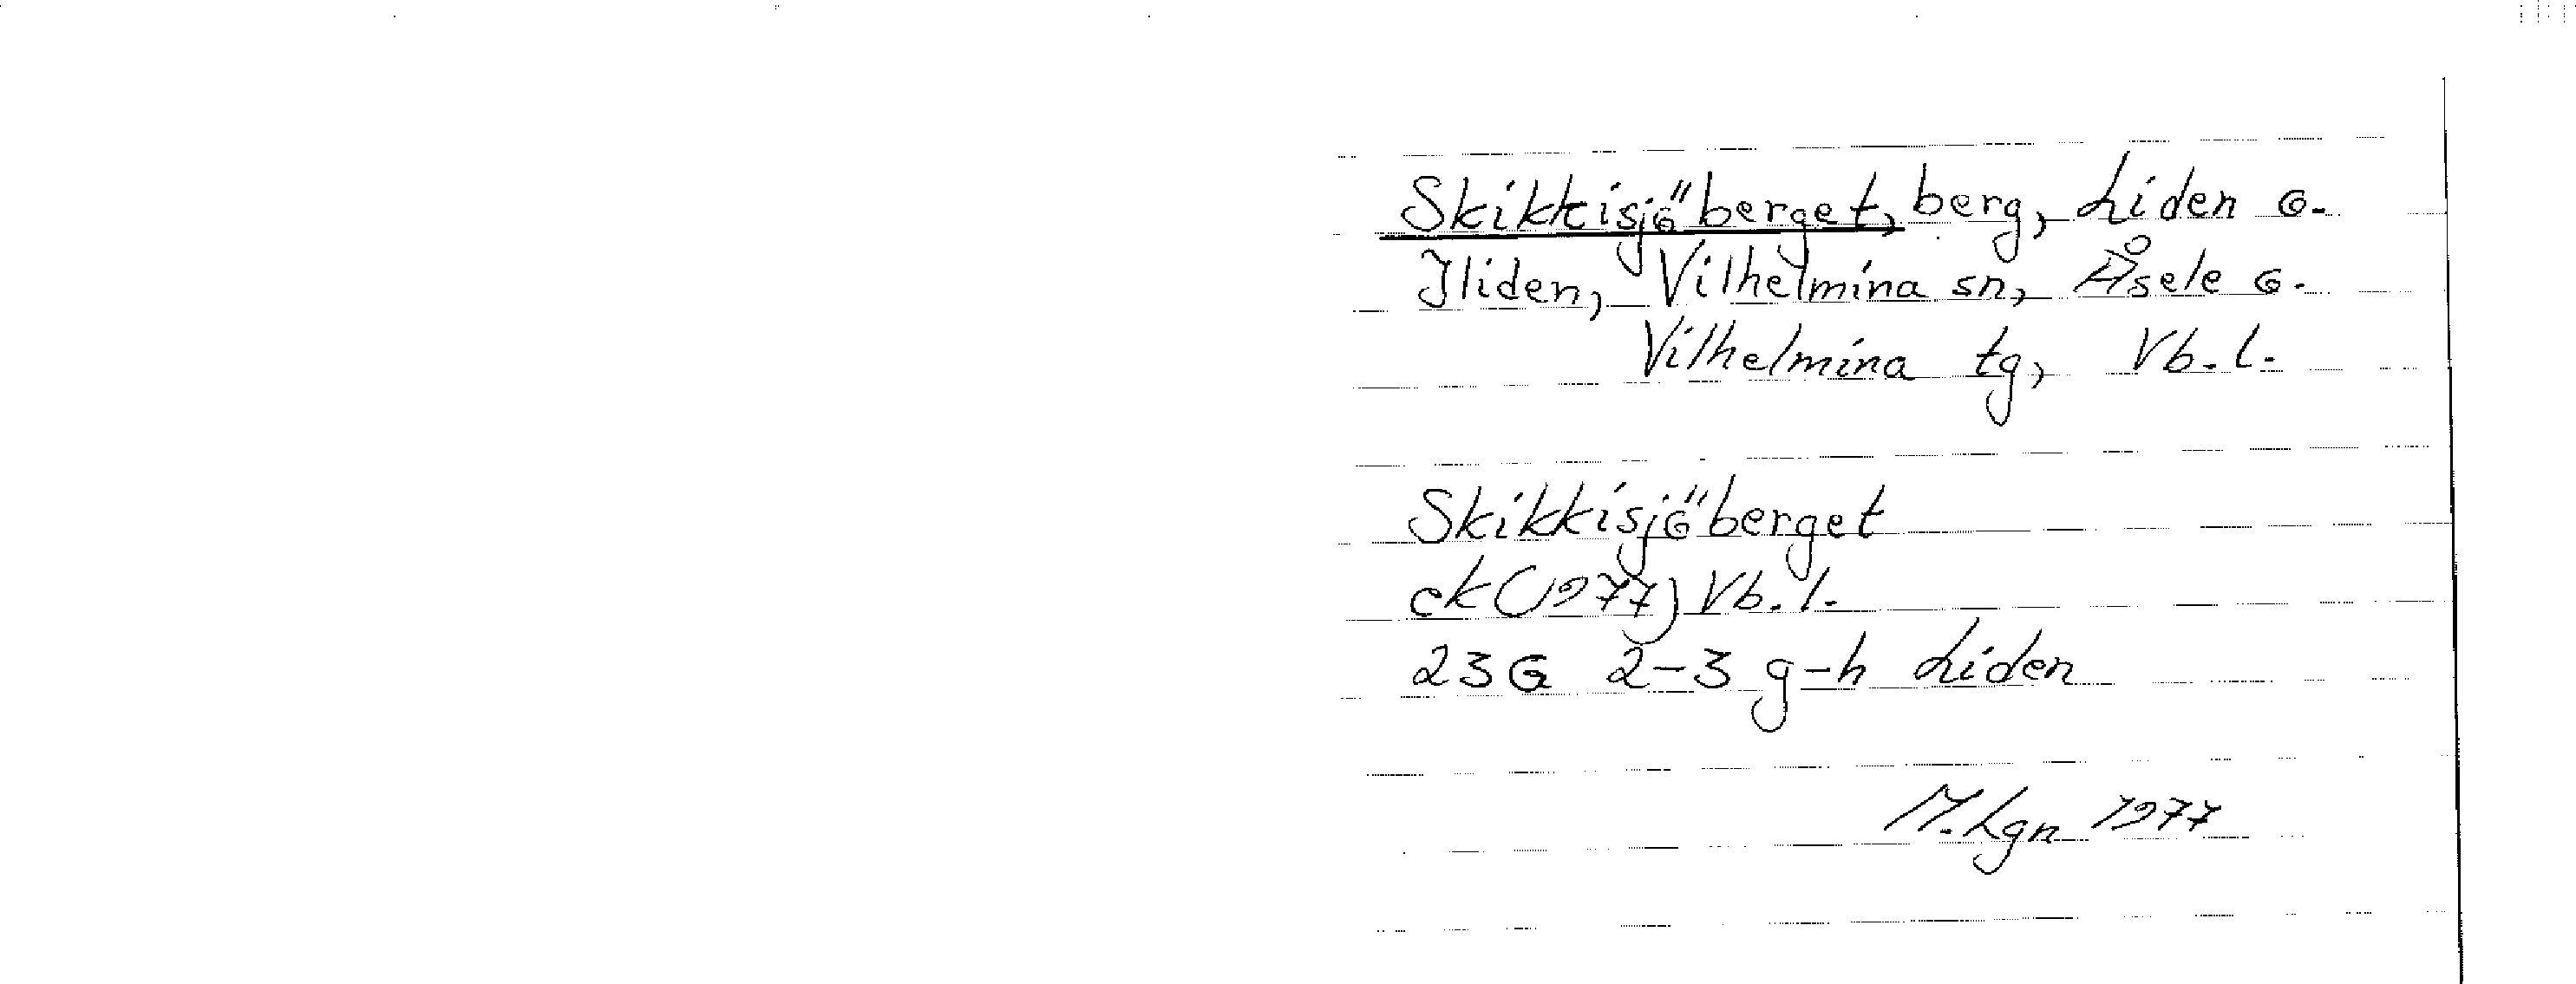 Skikkisjöberget, berg, Liden o.
Iliden, Vilhelmina sn, Åsele o.
Vilhelmina tg, Vb. l.
Skikkisjöberget
ek (1977) Vb. l.
23G 2-3 g-h Liden
M. Lgn 1977